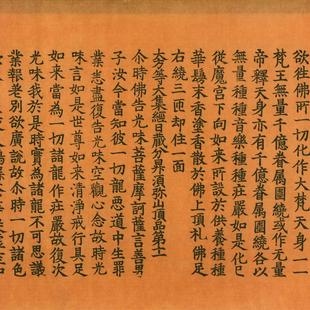 欲往佛所一切化作大梵天身一一
梵王無量千億眷属圍繞或作元量
帝釋天身亦有千億眷属圍繞各以
無量種種音樂種種莊嚴如是化已
從魔宮下向如来所設於供養種種
華鬘末香塗香散於佛上頂礼佛足
右繞三匝却住一面
大方等大集經日蔵分昇湏弥山頂品第十一
尒時佛告光味菩薩摩訶薩言善男
子汝今當知彼一切龍悪道中生罪
業悉盡復告光味空觀心念故時光
味言如是世尊如来清淨戒行具足
如来當為一切諸龍作莊嚴故復次
光味我於是時實為諸龍不可思議
業報差別欲廣説故尒時一切諸色